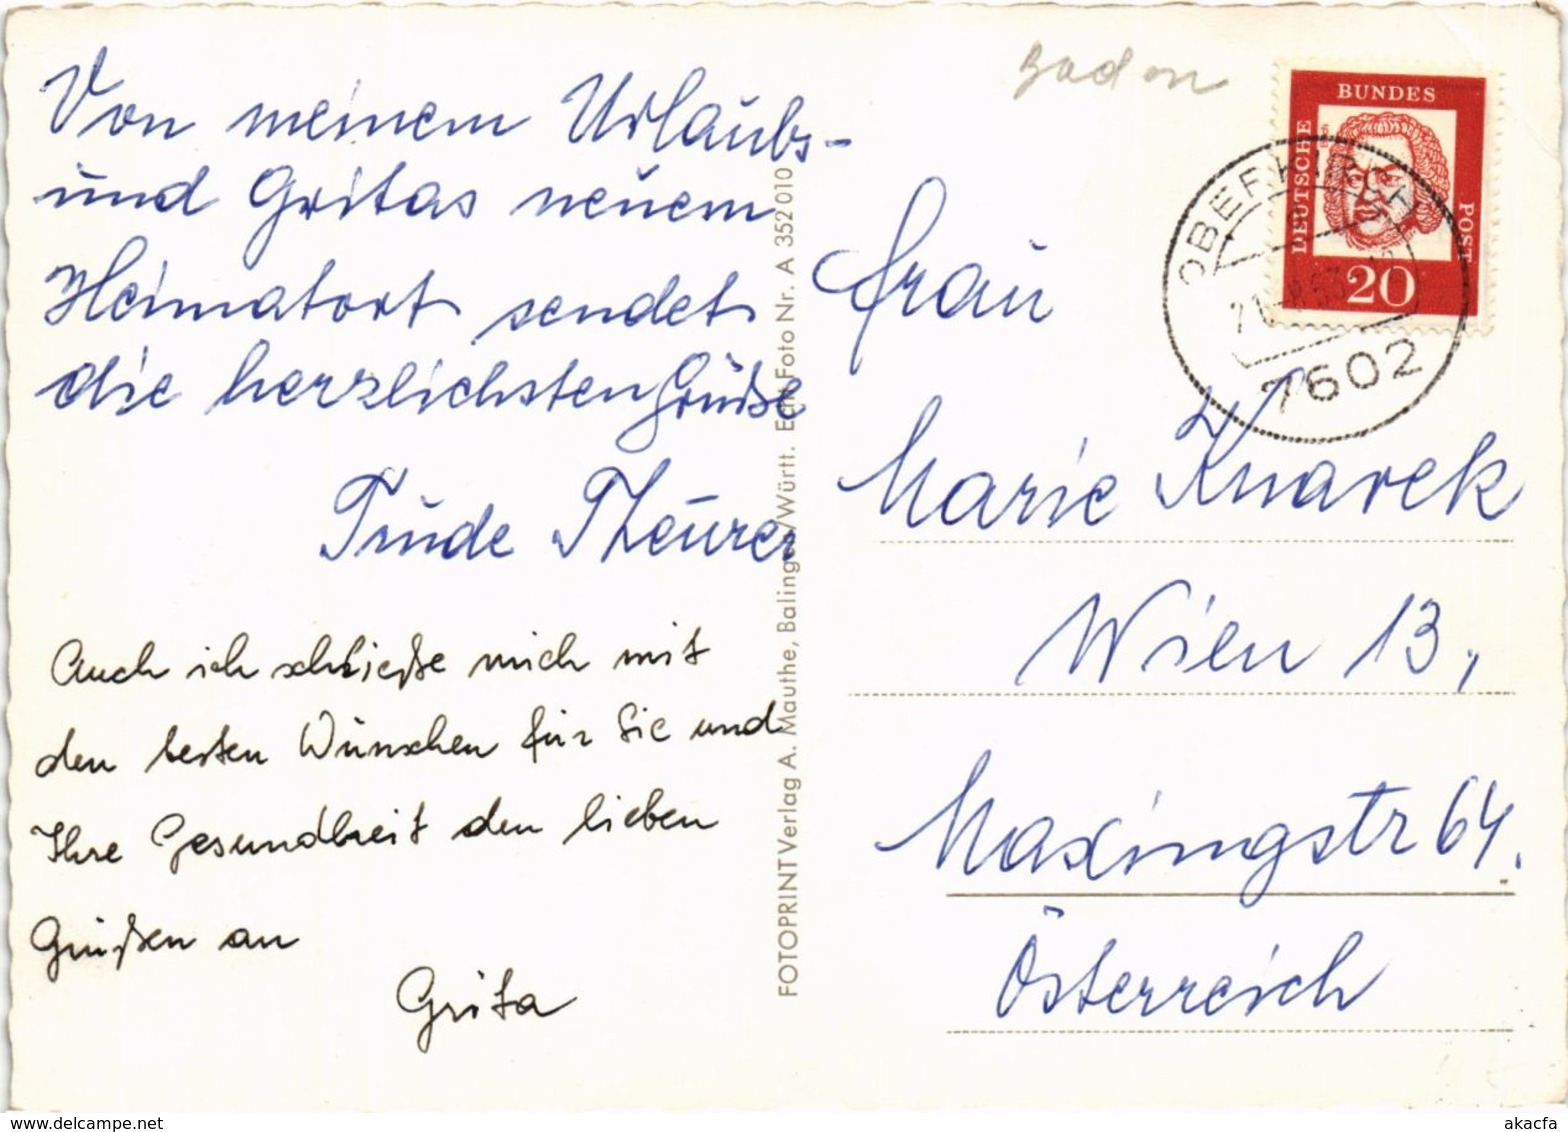 Von meinem Urlaubs-
und Gritas neuem
Heimatort sendet
die herzlichsten Grüße
Trude Theurer
Auch ich schließe mich mit
den besten Wünschen für Sie und
Ihre Gesundheit den lieben
Grüßen an
Grita
FOTOPRINT Verlag A. Mauthe, Balingen/Württ. Echt Foto Nr. A 352 010
Baden
DEUTSCHE
BUNDES
POST
20
OBERKIRCH
7602
Frau
Marie Knarek
Wien 13,
Maxingstr 64.
Österreich
akacfa